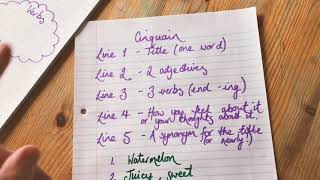 Verbs
Cinquain
Line 1 - Title (one word)
Line 2 - 2 adjectives
Line 3 - 3 verbs (end -ing)
Line 4 - How you feel about it
or your thoughts about it.
Line 5 - A synonym for the title
(or nearly!)
1. Watermelon
2. Juicy, sweet